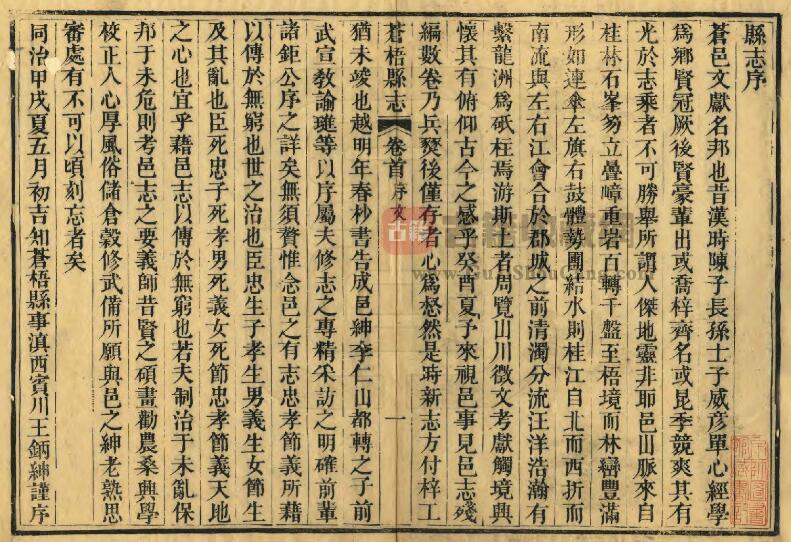 縣志序
蒼邑文獻名邦也昔漢時陳子長孫士子威彥單心經學
為鄉賢冠厥後賢豪輩出或喬梓齊名或昆季競爽其有
光於志乘者不可勝舉所謂人傑地靈非耶邑山脈來自
桂林石峯笏立疊嶂重岩百轉千盤至梧境而林巒豐滿
形如連傘左旗右鼓體勢團結水則桂江自北而西折而
南流與左右江會合於郡城之前清濁分流汪洋浩瀚有
繫龍洲為砥柱焉游斯土者周覽山川徵文考獻觸境興
懷其有俯仰古今之感乎癸酉夏予來視邑事見邑志殘
編數卷乃兵燹後僅存者心為惄然是時新志方付梓工
蒼梧縣志
卷首 序文
一
猶未竣也越明年春杪書告成邑紳李仁山都轉之子前
武宣教諭璡等以序屬夫修志之專精采訪之明確前輩
諸鉅公序之詳矣無須贅惟念邑之有志忠孝節義所藉
以傳於無窮也世之治也臣忠生子孝生男義生女節生
及其亂也臣死忠子死孝男死義女死節忠孝節義天地
之心也宜乎藉邑志以傳於無窮也若夫制治于未亂保
邦于未危則考邑志之要義師昔賢之碩畫勸農桑興學
校正人心厚風俗儲倉穀修武備所願與邑之紳老熟思
審處有不可以頃刻忘者矣
同治甲戌夏五月初吉知蒼梧縣事滇西賓川王鈵紳謹序
古籍
www.GuJiShouCang.com